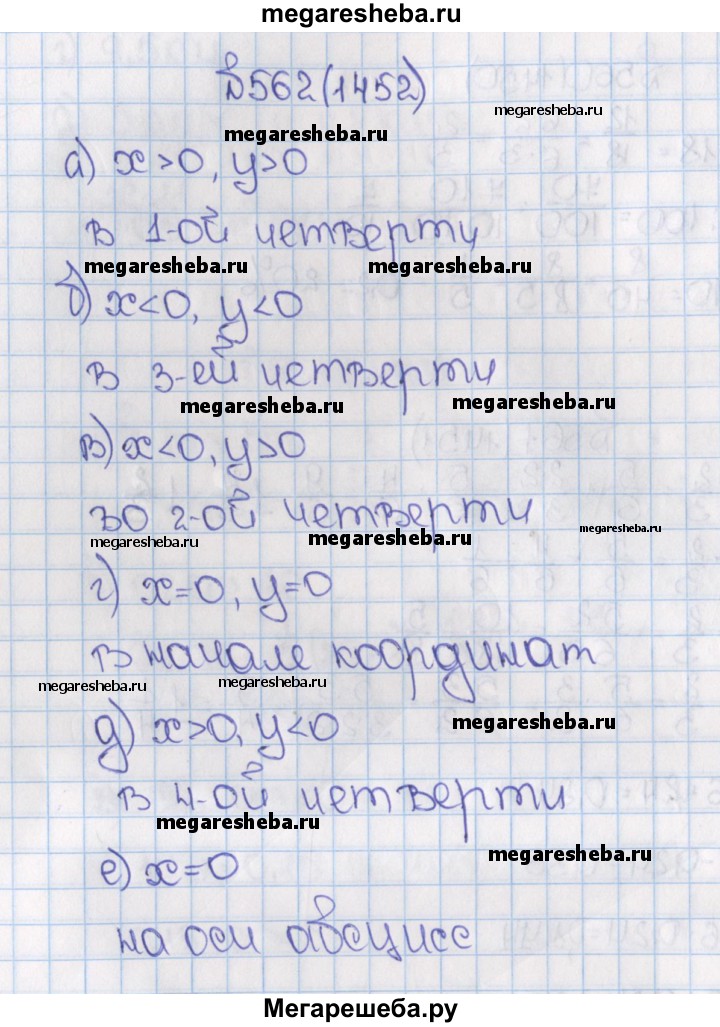 megaresheba.ru
№562(1452)
megaresheba.ru
megaresheba.ru
а) x>0, y>0
в 1-ой четверти
megaresheba.ru megaresheba.ru
б) x<0, y<0
в 3-ей четверти
megaresheba.ru megaresheba.ru
в) x<0, y>0
во 2-ой четверти
megaresheba.ru megaresheba.ru megaresheba.ru
г) x=0, y=0
в начале координат
megaresheba.ru megaresheba.ru
д) x>0, y<0
megaresheba.ru
в 4-ой четверти
megaresheba.ru
е) x=0
megaresheba.ru
на оси абсцисс
Мегарешеба.ру